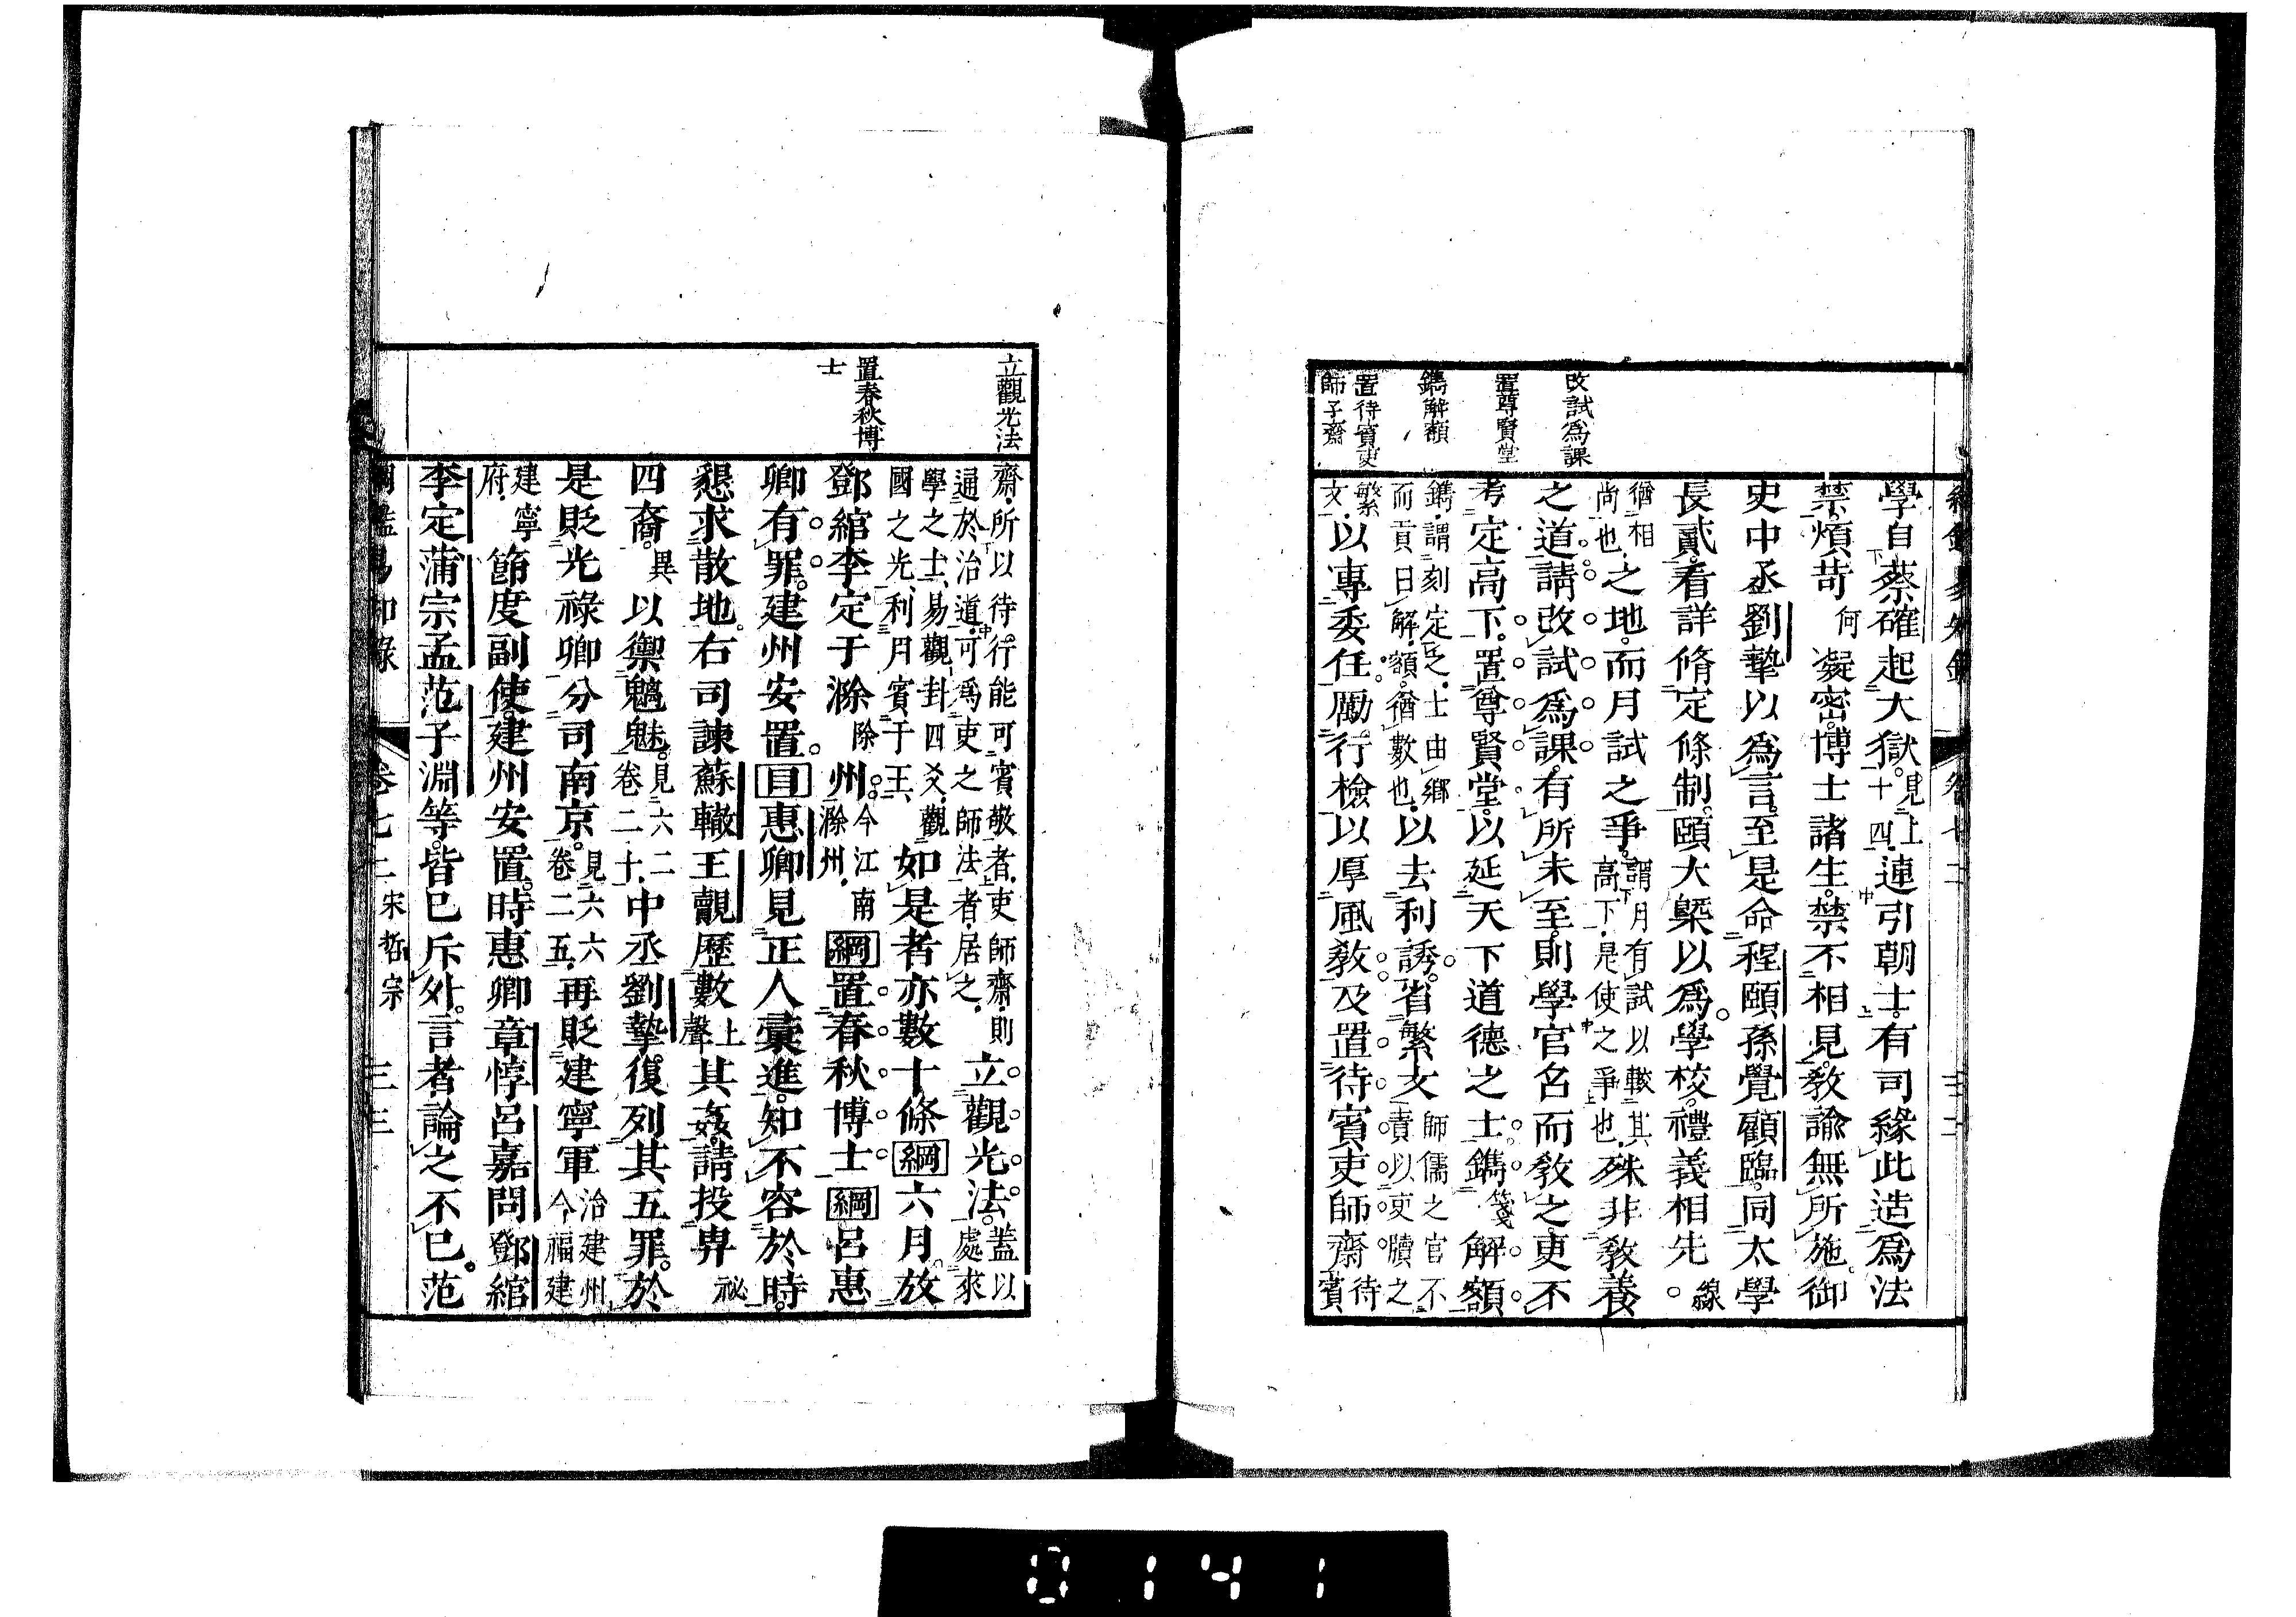 改試為課
置尊賢堂
鐫解額
置待賓吏
師子齋
學自蔡確起大獄見上十四連引朝士有司緣此造爲法
禁煩苛何凝密博士諸生禁不相見敎諭無所施御
史中丞劉摯以爲言至是命程頤孫覺顧臨同太學
長貳看詳脩定條制頤大槩以爲學校禮義相先線
猶相尚也之地而月試之爭謂月有試以較其高下是使之爭也殊非敎養
之道請改試爲課有所未至則學官名而敎之更不
考定高下置尊賢堂以延天下道德之士鐫箋解額
鐫謂刻定之士由鄉而貢曰解額猶數也以去利誘省繁文師儒之官不責以吏牘之
繁文以專委任勵行檢以厚風敎及置待賓吏師齋待賓
卷七十二
立觀光法
置春秋博
士
齋所以待行能可賓敬者吏師齋則通於治道可爲吏之師法者居之立觀光法蓋以處來
學之士易觀卦四爻觀國之光利用賓于王如是者亦數十條綱六月放
鄧綰李定于滁除州今江南滁州綱置春秋博士綱呂惠
卿有罪建州安置目惠卿見正人彙進知不容於時
懇求散地右司諫蘇轍王覿歷數上聲其姦請投畀祕
四裔異以禦魑魅見六二卷二十中丞劉摯復列其五罪於
是貶光祿卿分司南京見六六卷二五再貶建寧軍治建州今福建
建寧府節度副使建州安置時惠卿章惇呂嘉問鄧綰
李定蒲宗孟范子淵等皆已斥外言者論之不已范
綱鑑易知錄 卷七二 宋哲宗 三三
0141